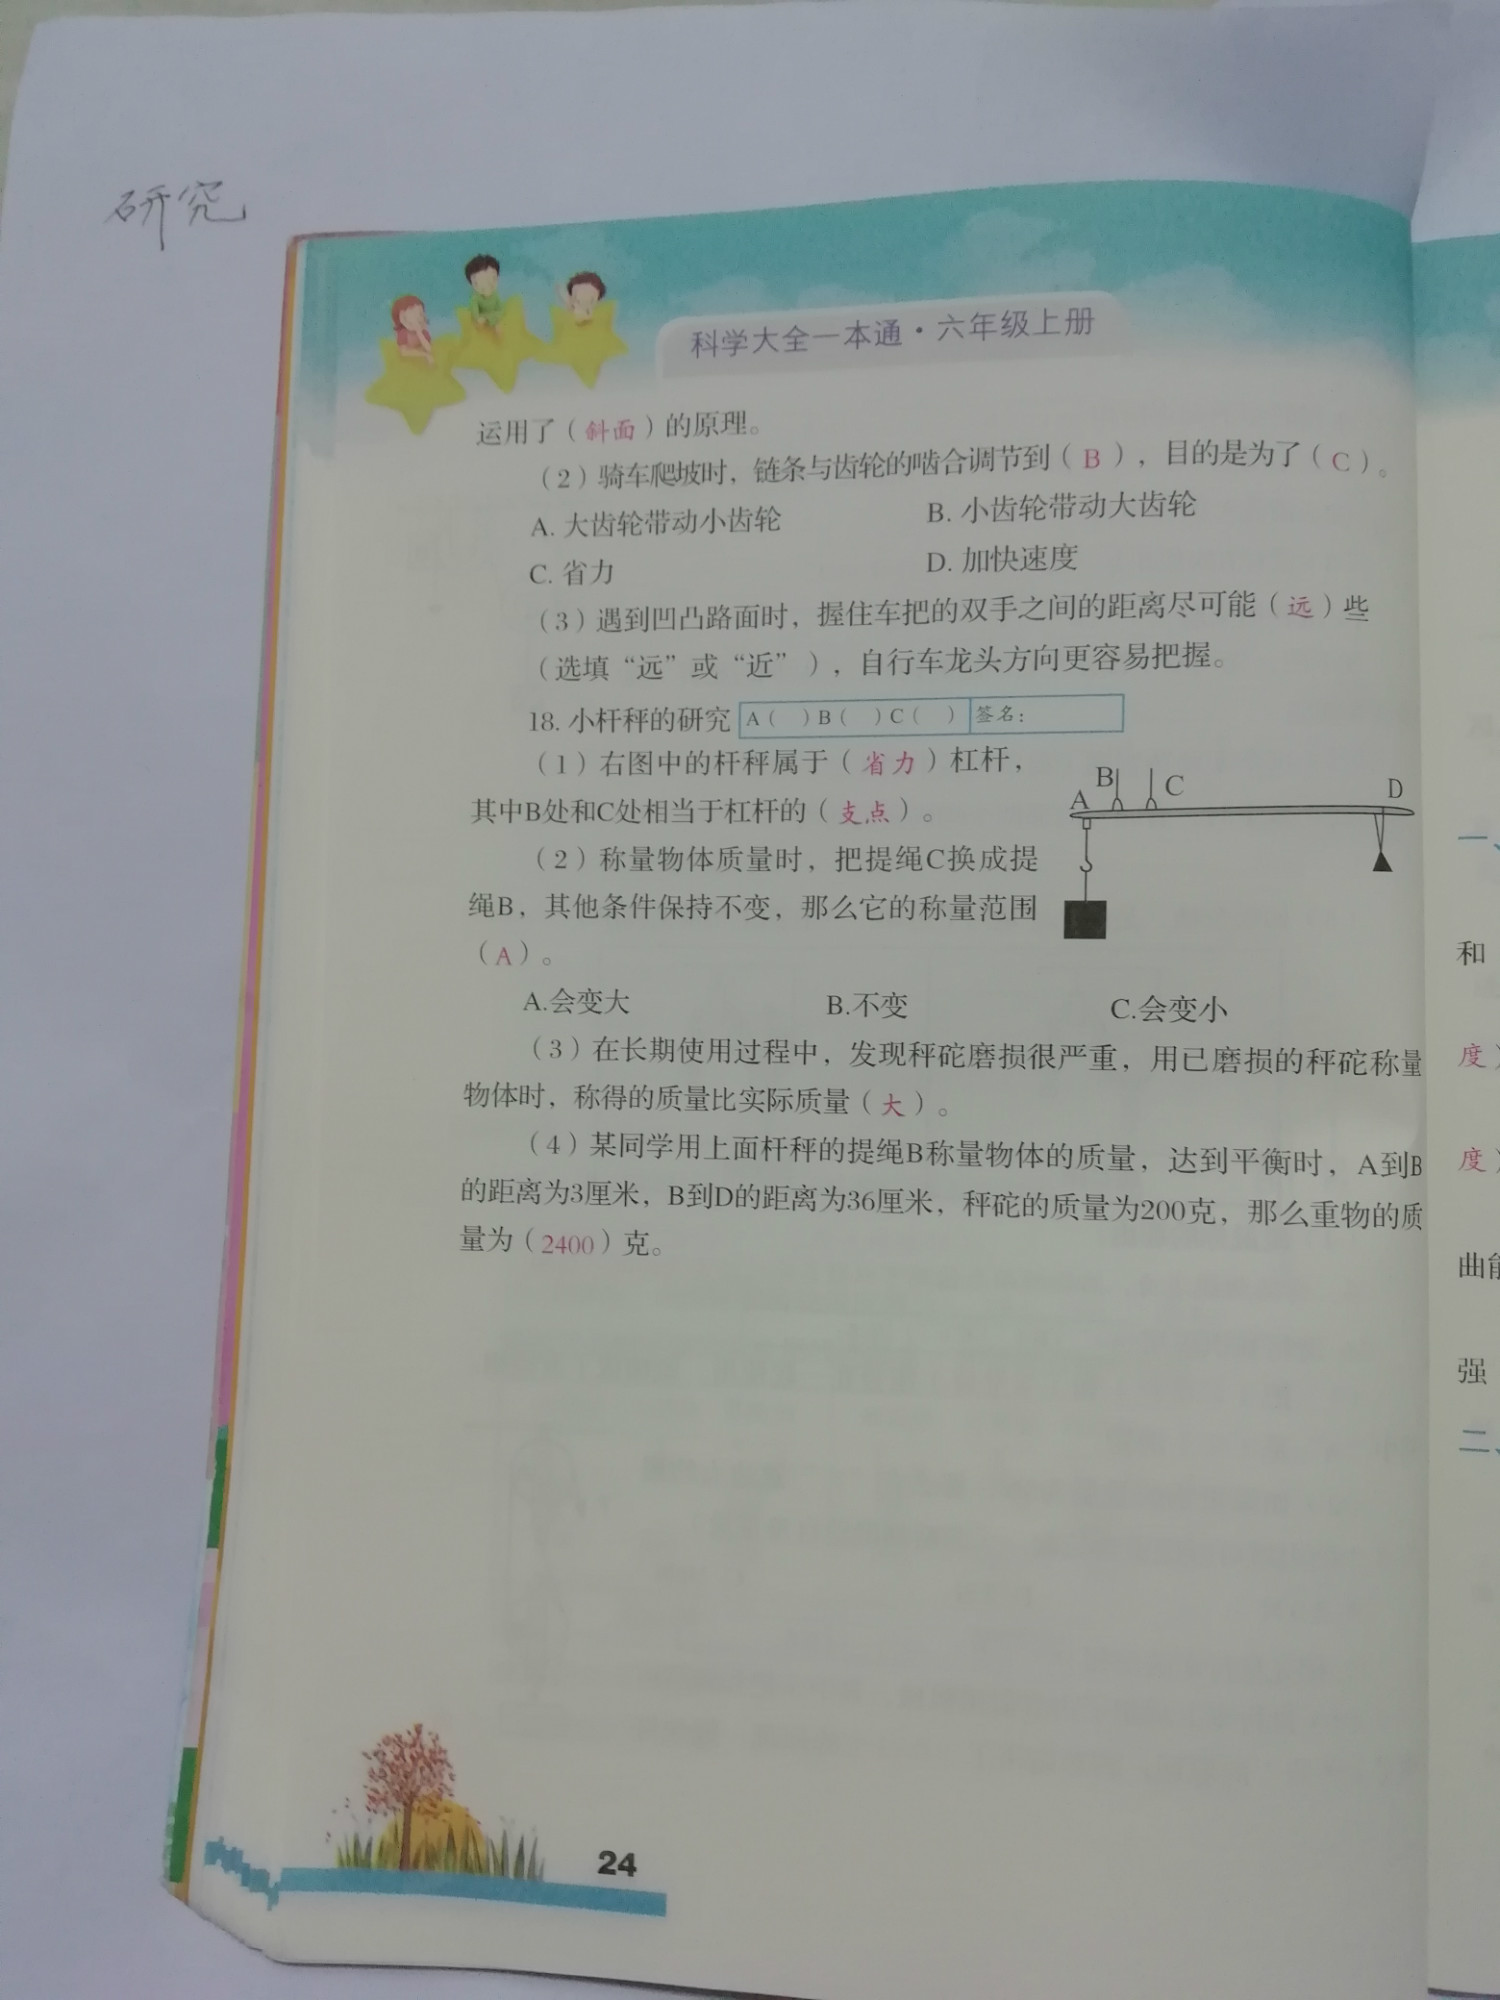 研究
科学大全一本通·六年级上册
运用了（斜面）的原理。
（2）骑车爬坡时，链条与齿轮的啮合调节到（B），目的是为了（C）。
A. 大齿轮带动小齿轮 B. 小齿轮带动大齿轮
C. 省力 D. 加快速度
（3）遇到凹凸路面时，握住车把的双手之间的距离尽可能（远）些
（选填“远”或“近”），自行车龙头方向更容易把握。
18. 小杆秤的研究 A（ ）B（ ）C（ ） 签名：
（1）右图中的杆秤属于（省力）杠杆，
其中B处和C处相当于杠杆的（支点）。
A B C D
（2）称量物体质量时，把提绳C换成提
绳B，其他条件保持不变，那么它的称量范围
（A）。
A.会变大 B.不变 C.会变小
（3）在长期使用过程中，发现秤砣磨损很严重，用已磨损的秤砣称量
物体时，称得的质量比实际质量（大）。
（4）某同学用上面杆秤的提绳B称量物体的质量，达到平衡时，A到B
的距离为3厘米，B到D的距离为36厘米，秤砣的质量为200克，那么重物的质
量为（2400）克。
24
一、
和
度）
度）
曲
强
二、